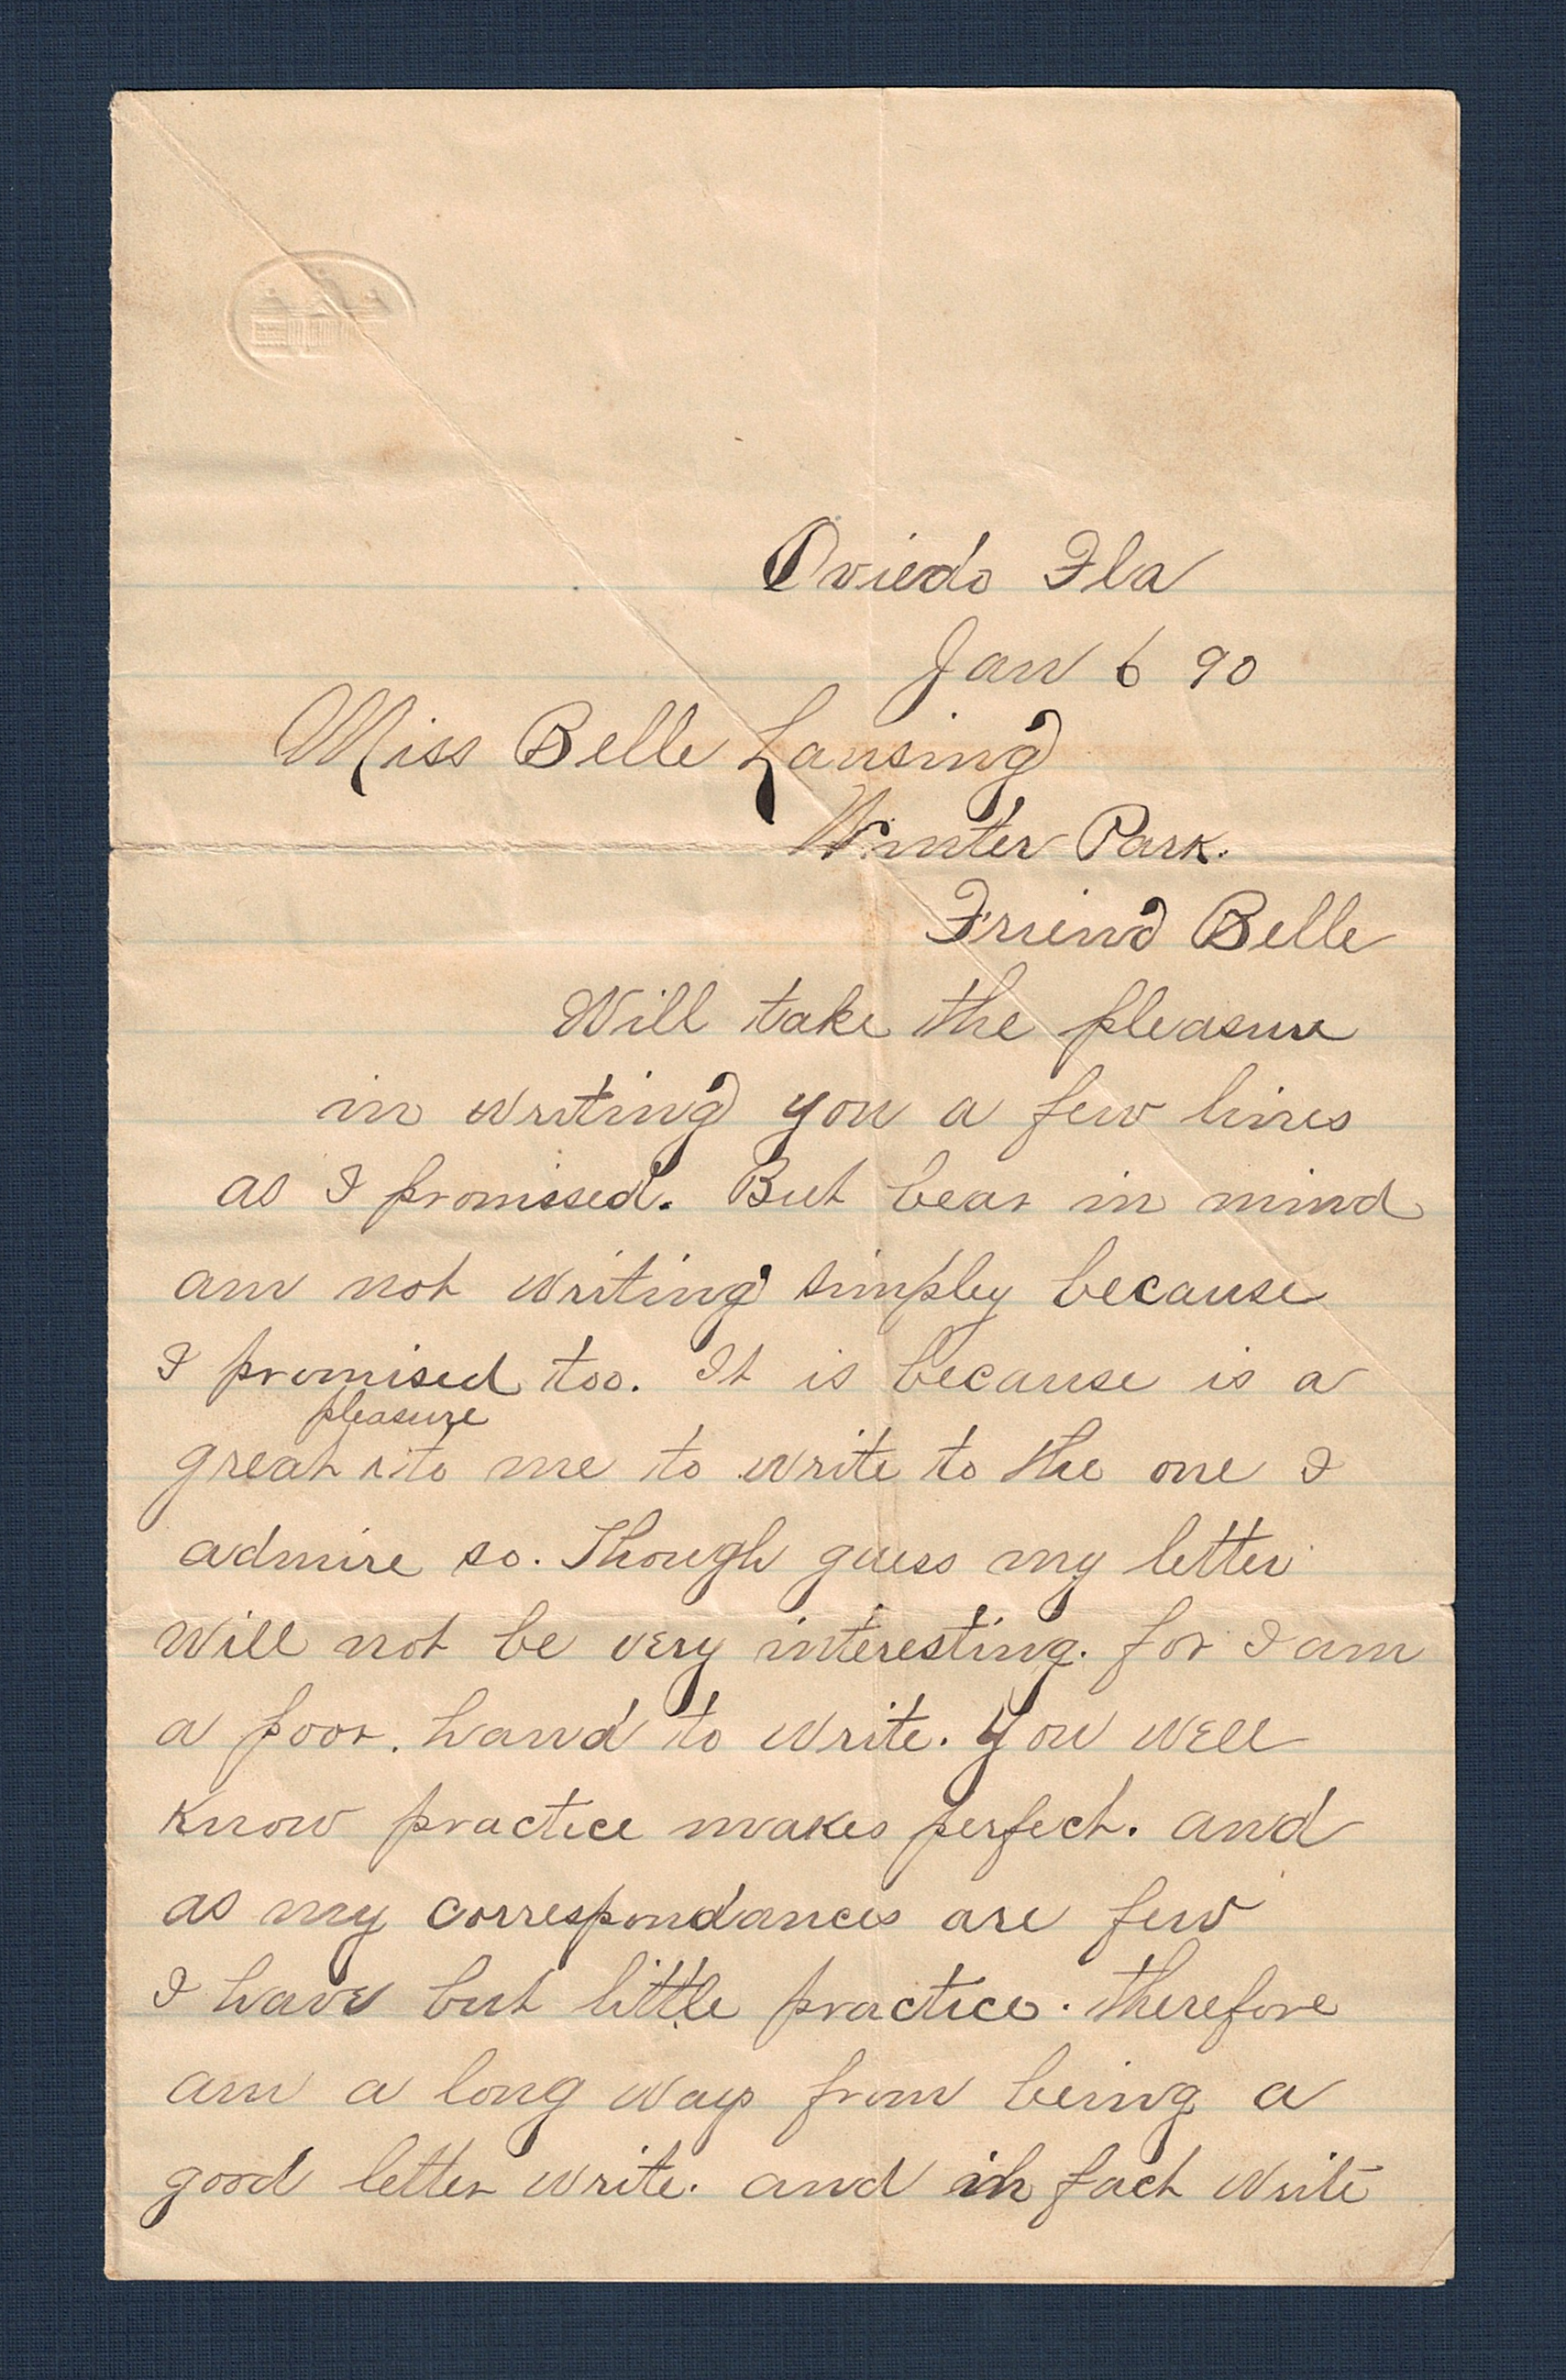 Oviedo Fla
Jan 6 90
Miss Belle Lansing
Winter Park.
Friend Belle
Will take the pleasure
in writing you a few lines
as I promissed. But bear in mind
am not writing simpley because
I promised too. It is because is a
pleasure
great ^ to me to write to the one I
admire so. Though guess my letter
will not be very interesting. for I am
a poor. hand to write. You well
know practice makes perfect. and
as my correspondances are few
I have but little practice. therefore
am a long ways from being a
good letter write. and in fact write